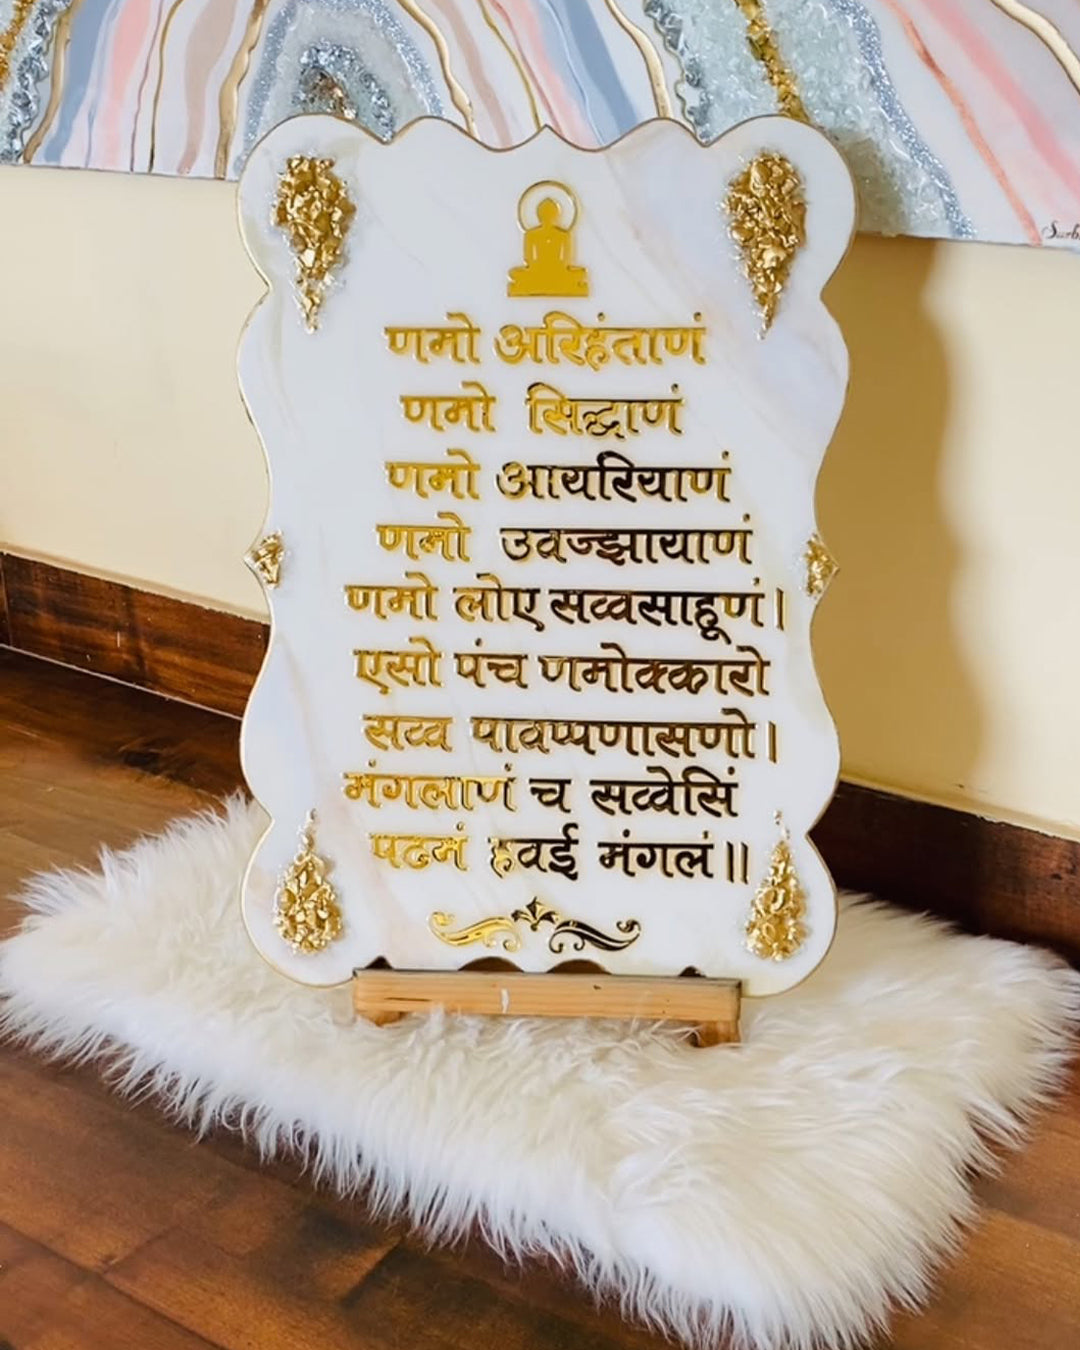 णमो अरिहंताणं
णमो सिद्धाणं
णमो आयरियाणं
णमो उवज्झायाणं
णमो लोए सव्वसाहूणं।
एसो पंच णमोक्कारो
सव्व पावप्पणासणो।
मंगलाणं च सव्वेसिं
पढमं हवई मंगलं॥